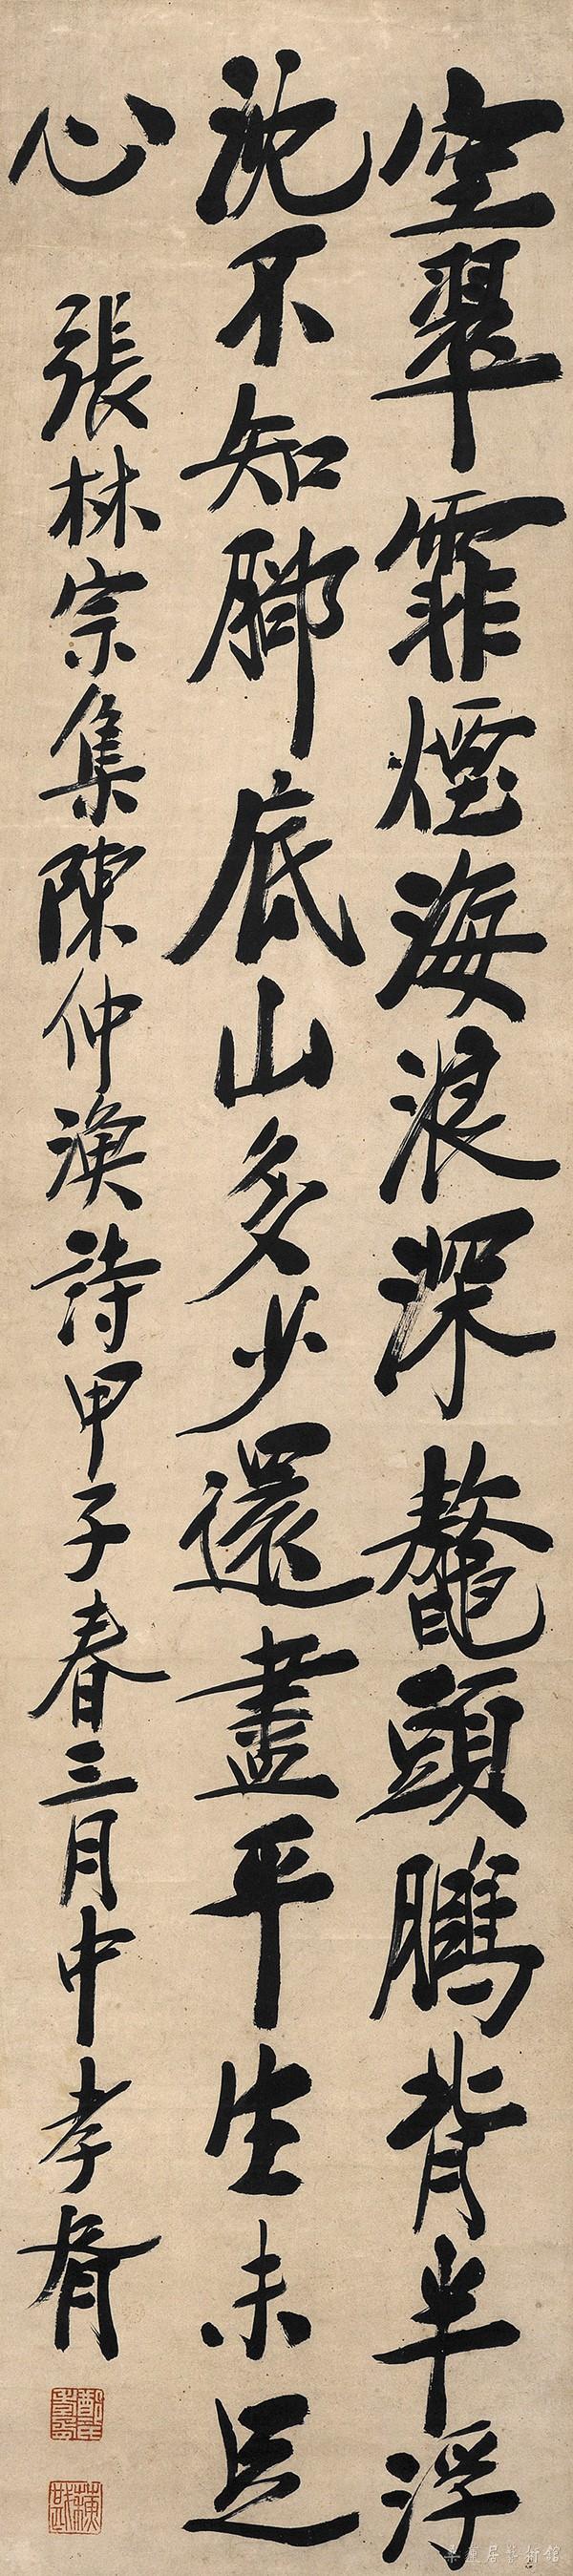 空翠霏煙海浪深鼇頭騰背半浮
沈不知腳底山多少還盡平生未足
心
張林宗集陳仲漁詩甲子春三月中孝胥